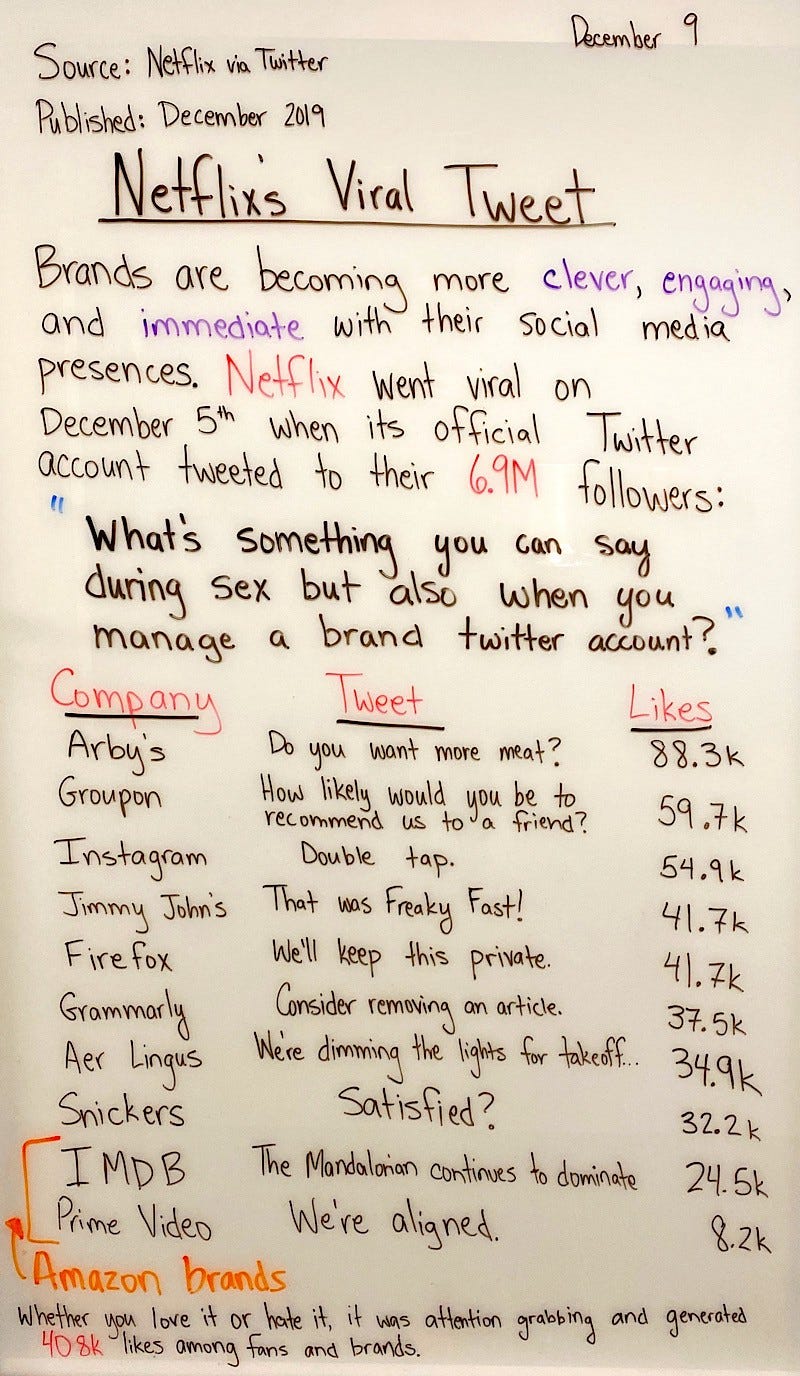 December 9
Source: Netflix via Twitter
Published: December 2019
Netflix's Viral Tweet
Brands are becoming more clever, engaging,
and immediate with their social media
presences. Netflix went viral on
December 5th when its official Twitter
account tweeted to their 6.9M followers:
"What's something you can say
during sex but also when you
manage a brand twitter account?"
Company Tweet Likes
Arby's Do you want more meat? 88.3k
Groupon How likely would you be to
recommend us to a friend? 59.7k
Instagram Double tap. 54.9k
Jimmy John's That was Freaky Fast! 41.7k
Firefox We'll keep this private. 41.7k
Grammarly Consider removing an article. 37.5k
Aer Lingus We're dimming the lights for takeoff... 34.9k
Snickers Satisfied? 32.2k
IMDB The Mandalorian continues to dominate 24.5k
Prime Video We're aligned. 8.2k
Amazon brands
Whether you love it or hate it, it was attention grabbing and generated
408k likes among fans and brands.